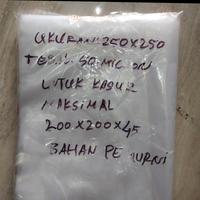 UKURAN 250X250
TEBAL 50 MICRON
UNTUK KASUR
MAKSIMAL
200X200X45
BAHAN PE MURNI